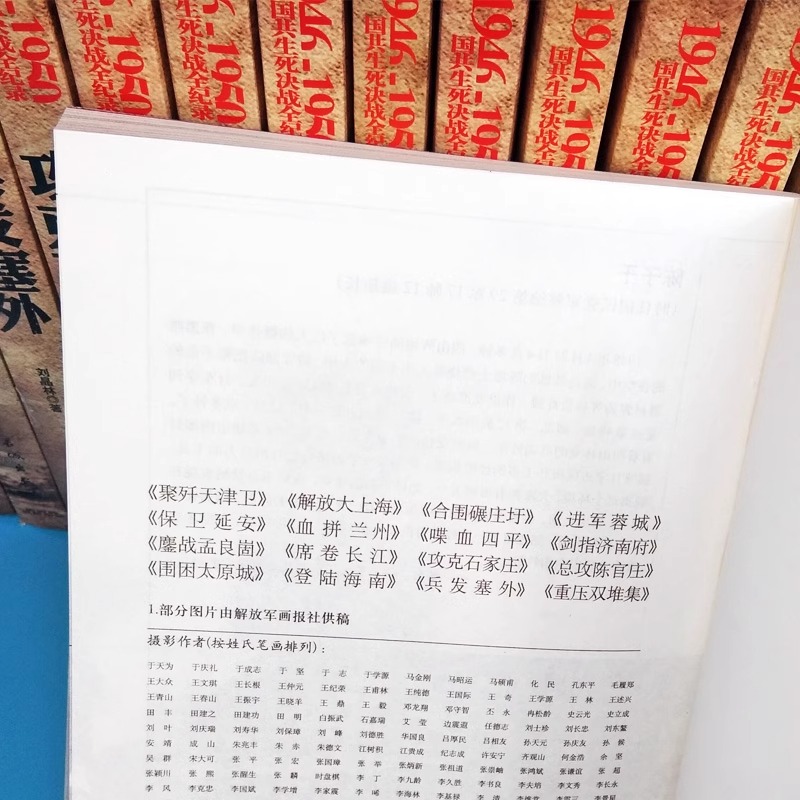 1946-1950
国共生死决战全纪录
1946-1950
国共生死决战全纪录
1946-1950
国共生死决战全纪录
1946-1950
国共生死决战全纪录
1946-1950
国共生死决战全纪录
1946-1950
国共生死决战全纪录
1946-1950
国共生死决战全纪录
1946-1950
国共生死决战全纪录
兵发塞外
刘晶林 著
《聚歼天津卫》 《解放大上海》 《合围碾庄圩》 《进军蓉城》
《保卫延安》 《血拼兰州》 《喋血四平》 《剑指济南府》
《鏖战孟良崮》 《席卷长江》 《攻克石家庄》 《总攻陈官庄》
《围困太原城》 《登陆海南》 《兵发塞外》 《重压双堆集》
1.部分图片由解放军画报社供稿
摄影作者(按姓氏笔画排列):
于天为 于庆礼 于成志 于坚 于志 于学源 马金刚 马昭运 马硕甫 化民 孔东平 毛履郑
王大众 王文琪 王长根 王仲元 王纪荣 王甫林 王纯德 王国际 王奇 王学源 王林 王述兴
王青山 王春山 王振宇 王晓羊 王鼎 王毅 邓龙翔 邓守智 丕永 冉松龄 史云光 史立成
田丰 田建之 田建功 田明 白振武 石嘉瑞 艾莹 边震遐 任德志 刘士珍 刘长忠 刘东鳌
刘叶 刘庆瑞 刘寿华 刘保璋 刘峰 刘德胜 华国良 吕厚民 吕相友 孙天元 孙庆友 孙候
安靖 成山 朱兆丰 朱赤 朱德文 江树积 江贵成 纪志成 许安宁 齐观山 何金浩 余坚
吴群 宋大可 张平 张宏 张国璋 张举 张炳新 张祖道 张崇岫 张鸿斌 张谦谊 张超
张颖川 张熙 张醒生 张麟 时盘棋 李丁 李九龄 李久胜 李书良 李夫培 李文秀 李长永
李风 李克忠 李国斌 李学增 李家震 李晞 李海林 李基禄 李清